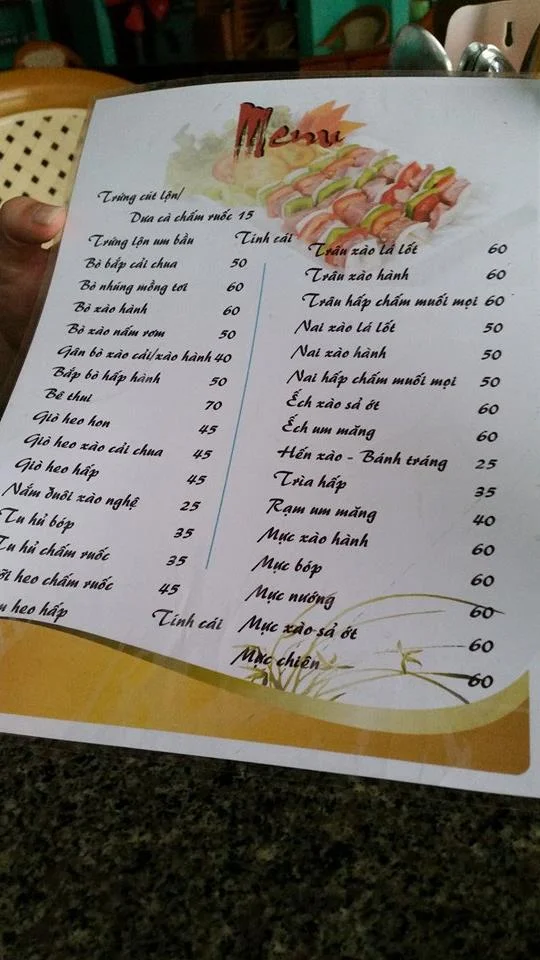 Menu
Trứng cút lộn/
Dưa cà chấm ruốc 15
Trứng lộn um bầu Tính cái
Bò bắp cải chua 50
Bò nhúng mồng tơi 60
Bò xào hành 60
Bò xào nấm rơm 50
Gân bò xào cải/xào hành 40
Bắp bò hấp hành 50
Bê thui 70
Giò heo hon 45
Giò heo xào cải chua 45
Giò heo hấp 45
Nắm đuôi xào nghệ 25
Tu hủ bóp 35
Tu hủ chấm ruốc 35
heo chấm ruốc 45
heo hấp Tính cái
Trâu xào lá lốt 60
Trâu xào hành 60
Trâu hấp chấm muối mọi 60
Nai xào lá lốt 50
Nai xào hành 50
Nai hấp chấm muối mọi 50
Ếch xào sả ớt 60
Ếch um măng 60
Hến xào - Bánh tráng 25
Trìa hấp 35
Rạm um măng 40
Mực xào hành 60
Mực bóp 60
Mực nướng 60
Mực xào sả ớt 60
Mực chiên 60